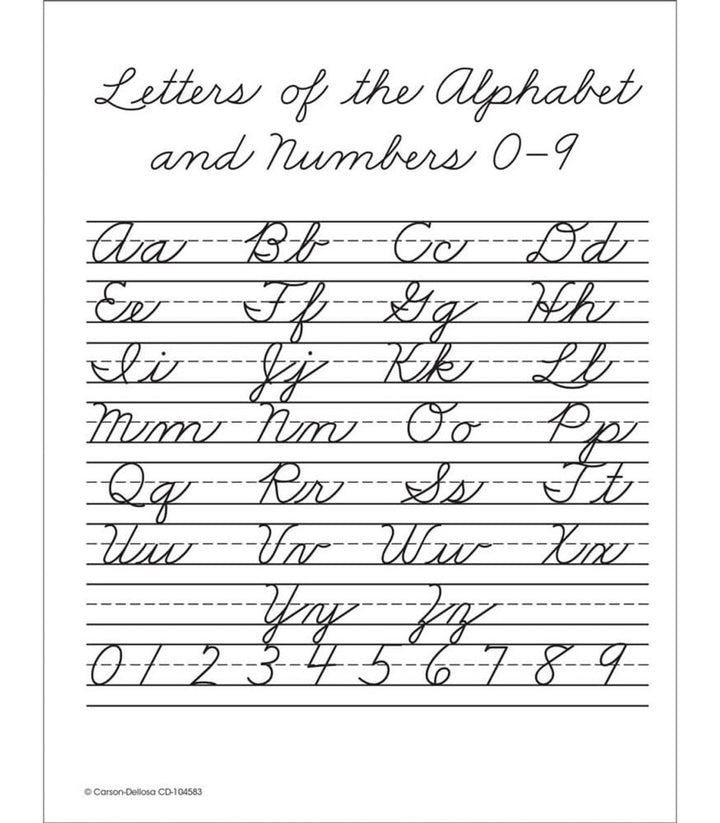 Letters of the Alphabet
and Numbers 0-9
Aa Bb Cc Dd
Ee Ff Gg Hh
Ii Jj Kk Ll
Mm Nn Oo Pp
Qq Rr Ss Tt
Uu Vv Ww Xx
Yy Zz
0 1 2 3 4 5 6 7 8 9
© Carson-Dellosa CD-104583